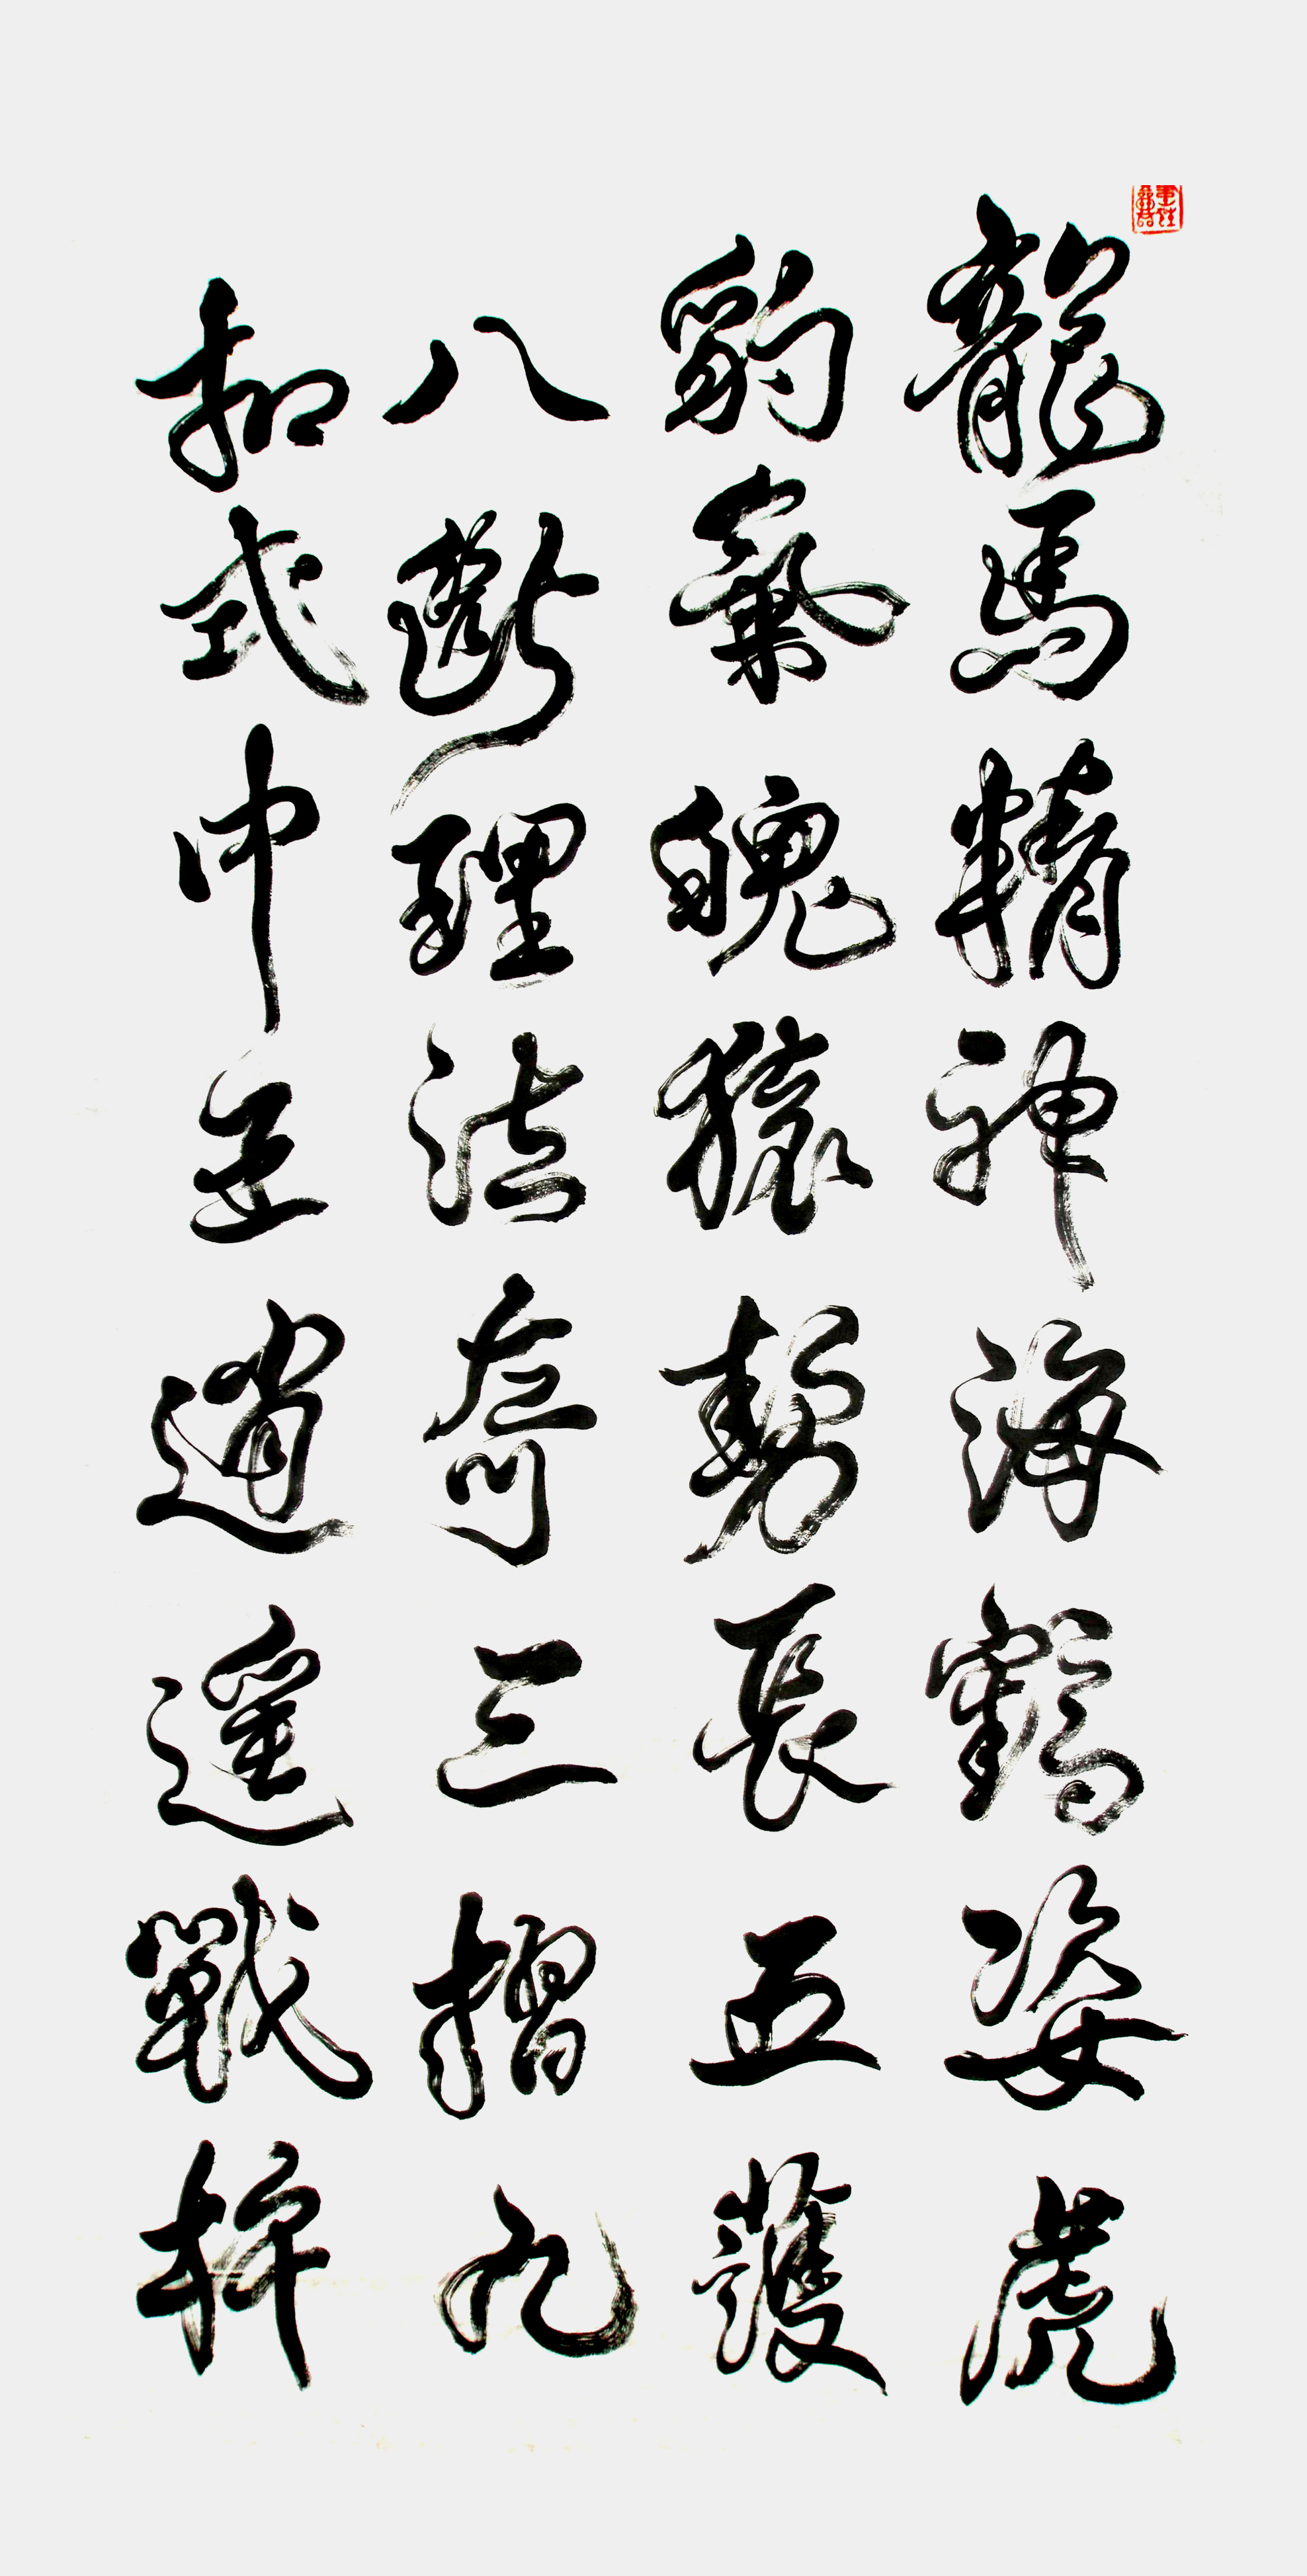 龍馬精神海鶴姿虎
豹氣魄猿勢長五護
八斷理法奇三摺九
扣式中正逍遙戰